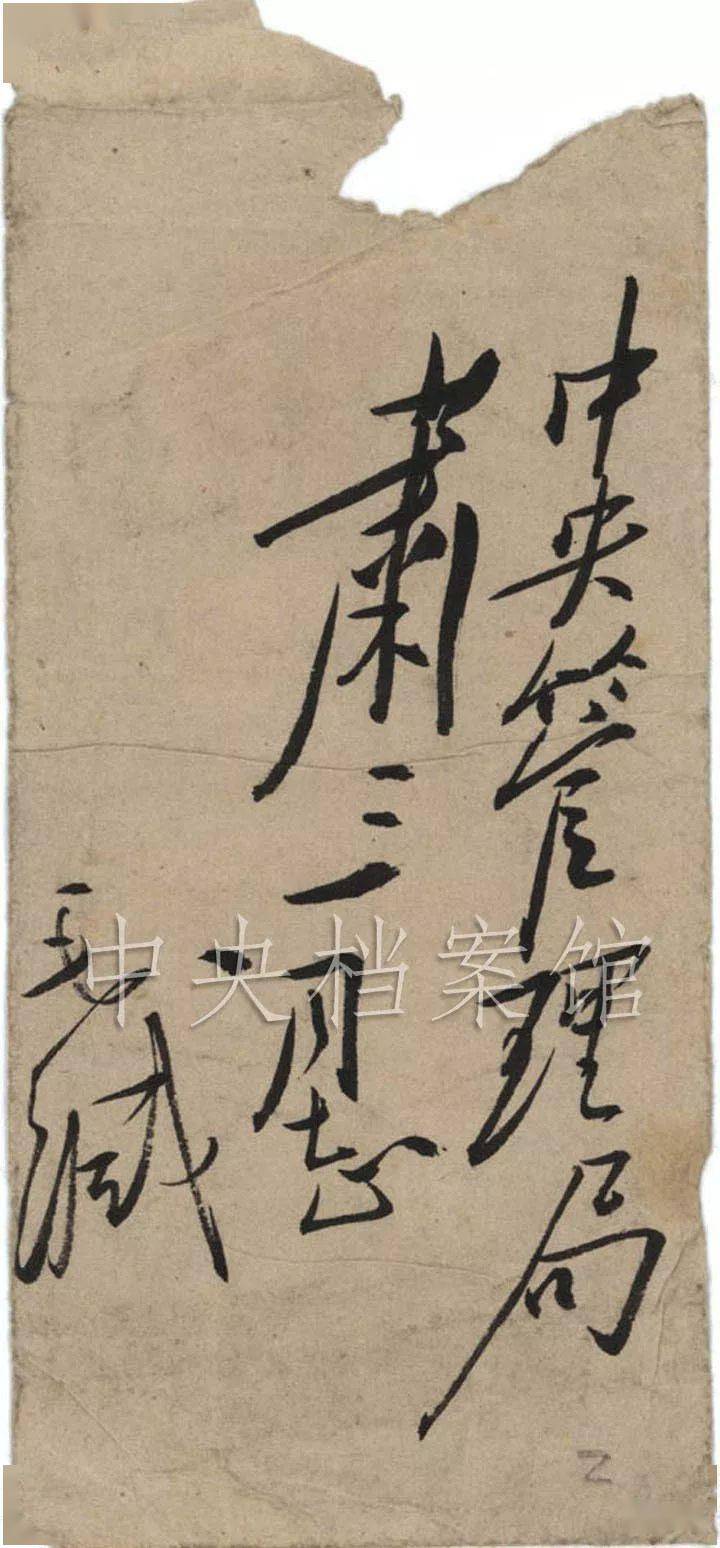 中央管理局
萧三同志
毛缄
中央档案馆